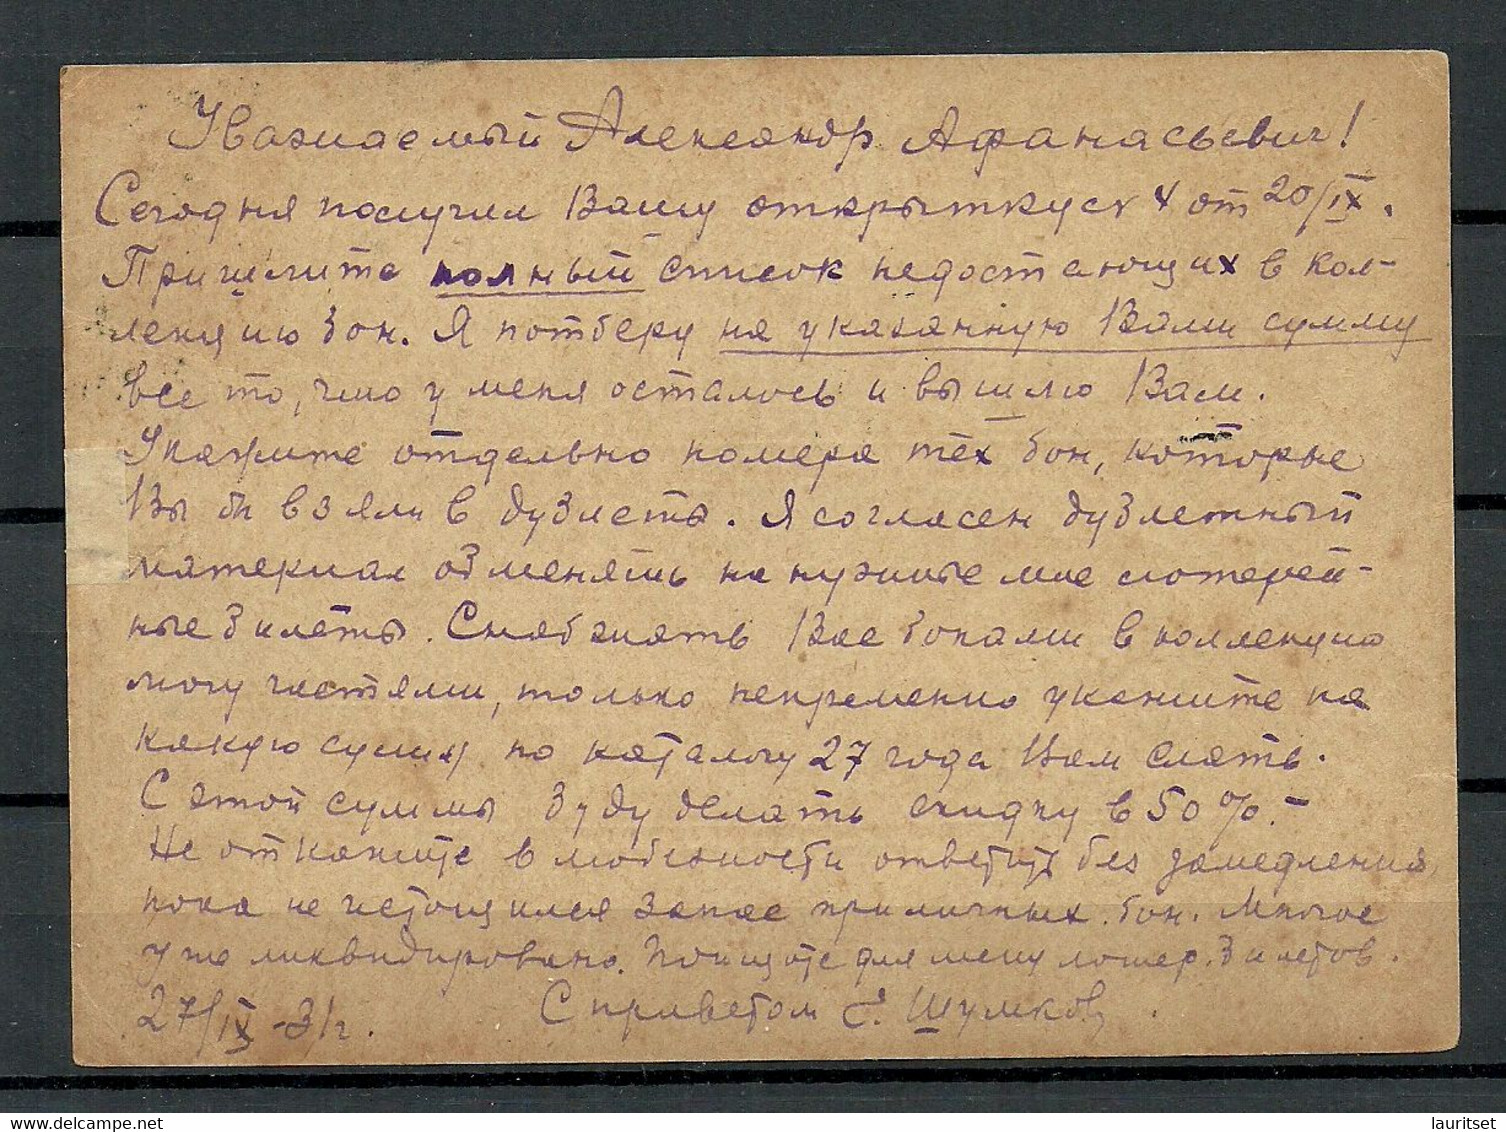 Уважаемый Александр Афанасьевич!
Сегодня получил Вашу открытку от 20/IX.
Пришлите полный список недостающих в кол-
лекцию бон. Я подберу на указанную Вами сумму
все то, что у меня осталось и вышлю Вам.
Укажите отдельно номера тех бон, которые
Вы бы взяли в дублеты. Я согласен дублетный
материал обменять на нужные мне лотерей-
ные билеты. Снабжать Вас бонами в коллекцию
могу частями, только непременно укажите на
какую сумму по каталогу 27 года Вам слать.
С этой суммы буду делать скидку в 50%. -
Не откажите в любезности ответить без замедления,
пока не истощился запас приличных бон. Многое
уже ликвидировано. Поищите для меня лотер. билетов.
27/IX-31г. С приветом Шумков
lauritset